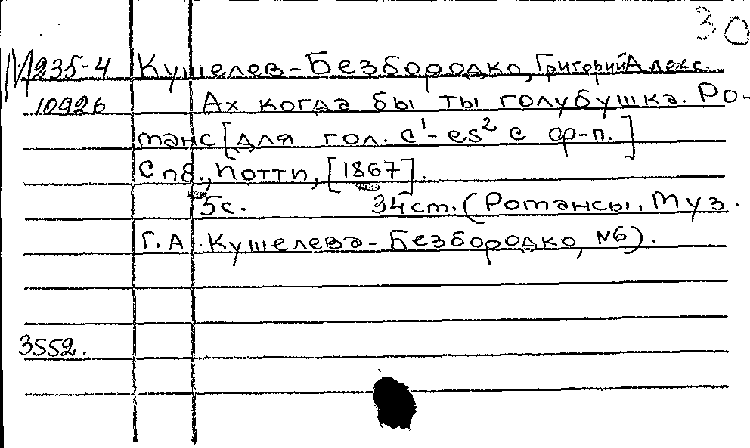 30
М 235-4 Кушелев-Безбородко, Григорий Алекс.
10926 Ах когда бы ты голубушка. Ро-
манс [для гол. c¹-es² с ф-п.]
Спб., Потти, [1867].
5с. 34см. (Романсы. Муз.
Г.А. Кушелева-Безбородко, №6).
3552.